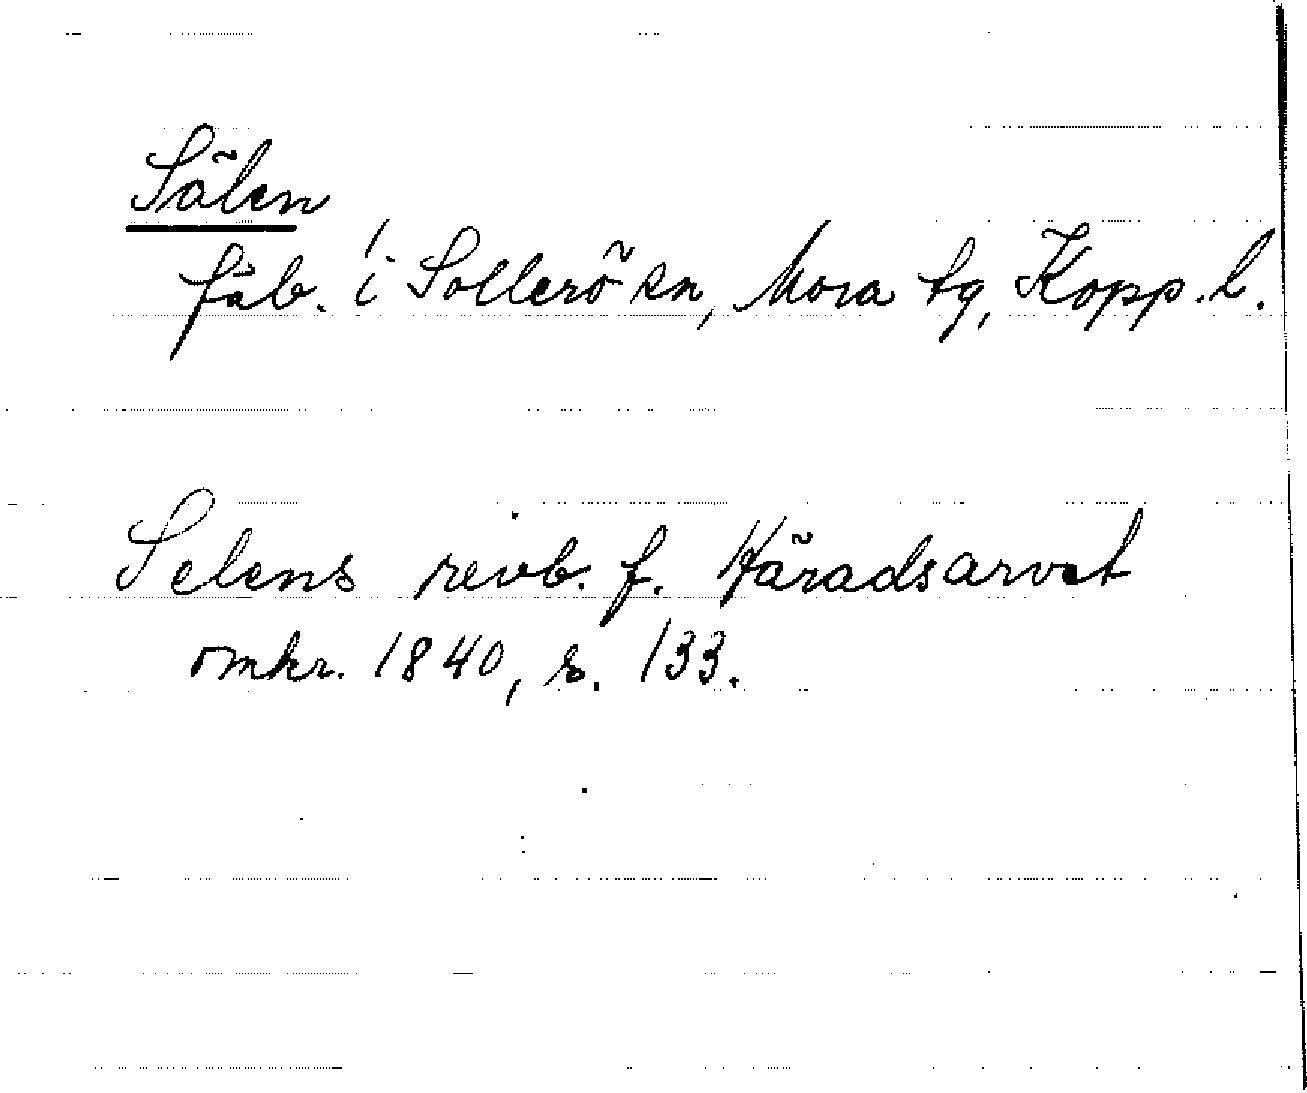 Sälen
fäb. i Sollerö sn, Mora tg, Kopp. l.
Selens reivb. f. Häradsarvet
omkr. 1840, s. 133.